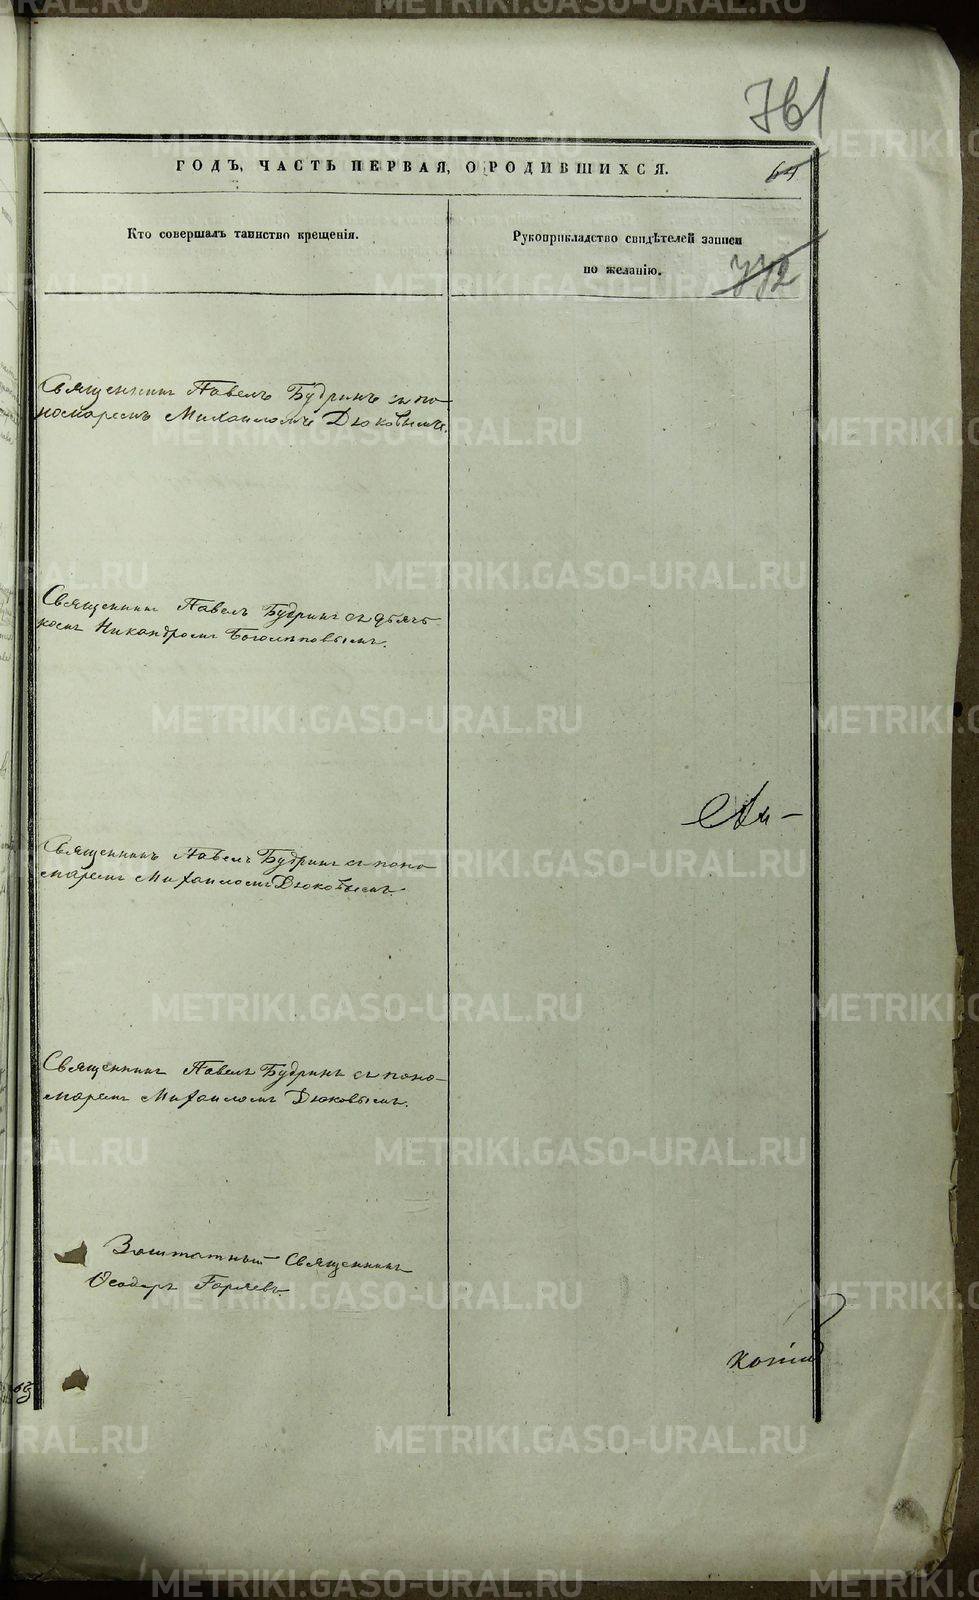 761
ГОДЪ, ЧАСТЬ ПЕРВАЯ, О РОДИВШИХСЯ.
64
Кто совершалъ таинство крещенія.
Рукоприкладство свидѣтелей записи
по желанію.
772
Священникъ Павелъ Будринъ съ по-
номаремъ Михаиломъ Дюковымъ.
Священникъ Павелъ Будринъ съ дьяч-
комъ Никандромъ Боголѣповымъ.
Священникъ Павелъ Будринъ съ поно-
маремъ Михаиломъ Дюковымъ.
Священникъ Павелъ Будринъ съ поно-
маремъ Михаиломъ Дюковымъ.
Заштатный Священникъ
Ѳеодоръ Горяевъ.
METRIKI.GASO-URAL.RU